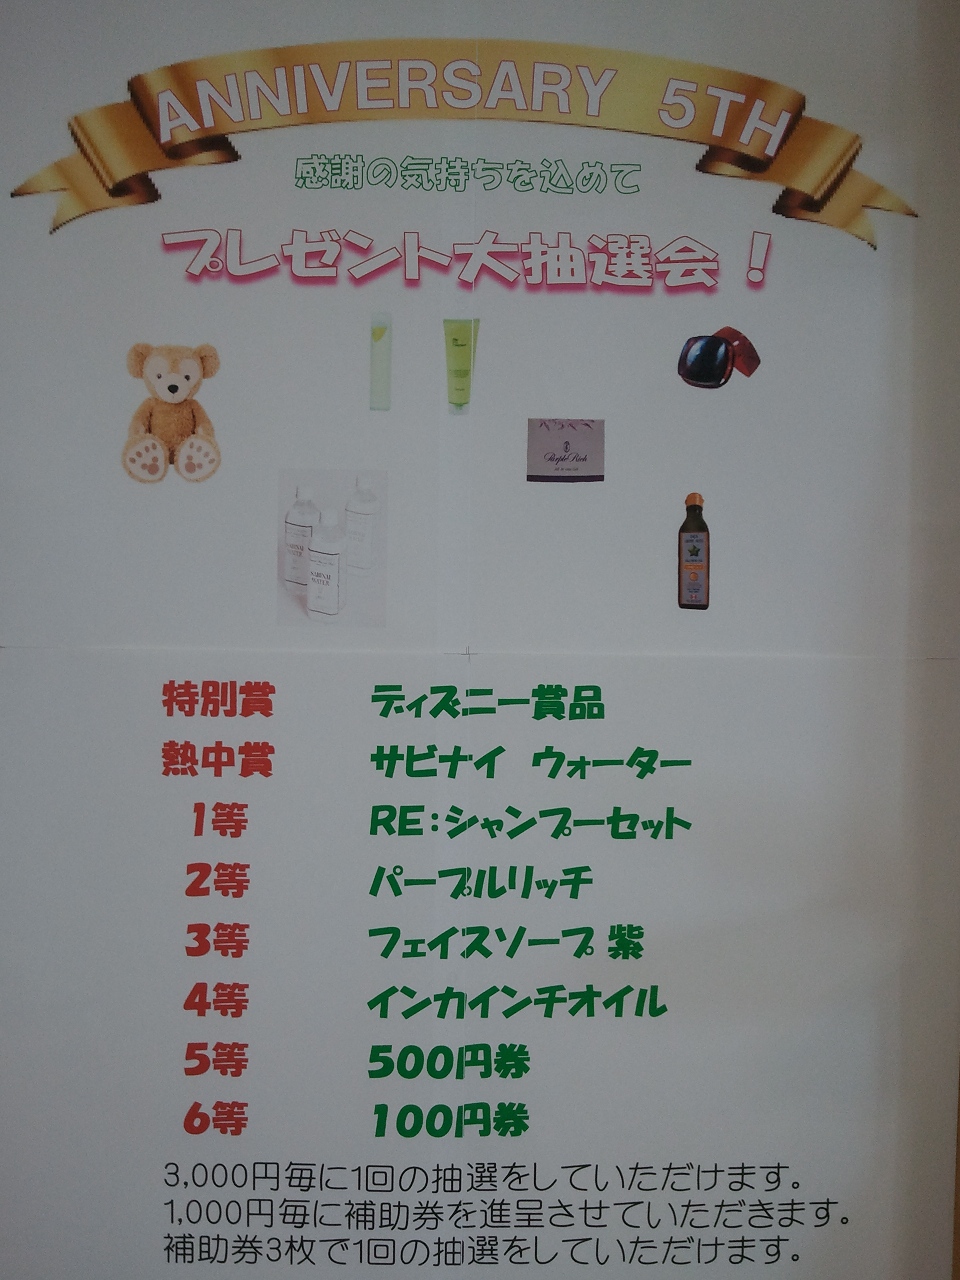 ANNIVERSARY 5TH
感謝の気持ちを込めて
プレゼント大抽選会！
Purple Rich
SABINAL
WATER
特別賞 ディズニー賞品
熱中賞 サビナイ ウォーター
1等 RE:シャンプーセット
2等 パープルリッチ
3等 フェイスソープ 紫
4等 インカインチオイル
5等 500円券
6等 100円券
3,000円毎に1回の抽選をしていただけます。
1,000円毎に補助券を進呈させていただきます。
補助券3枚で1回の抽選をしていただけます。